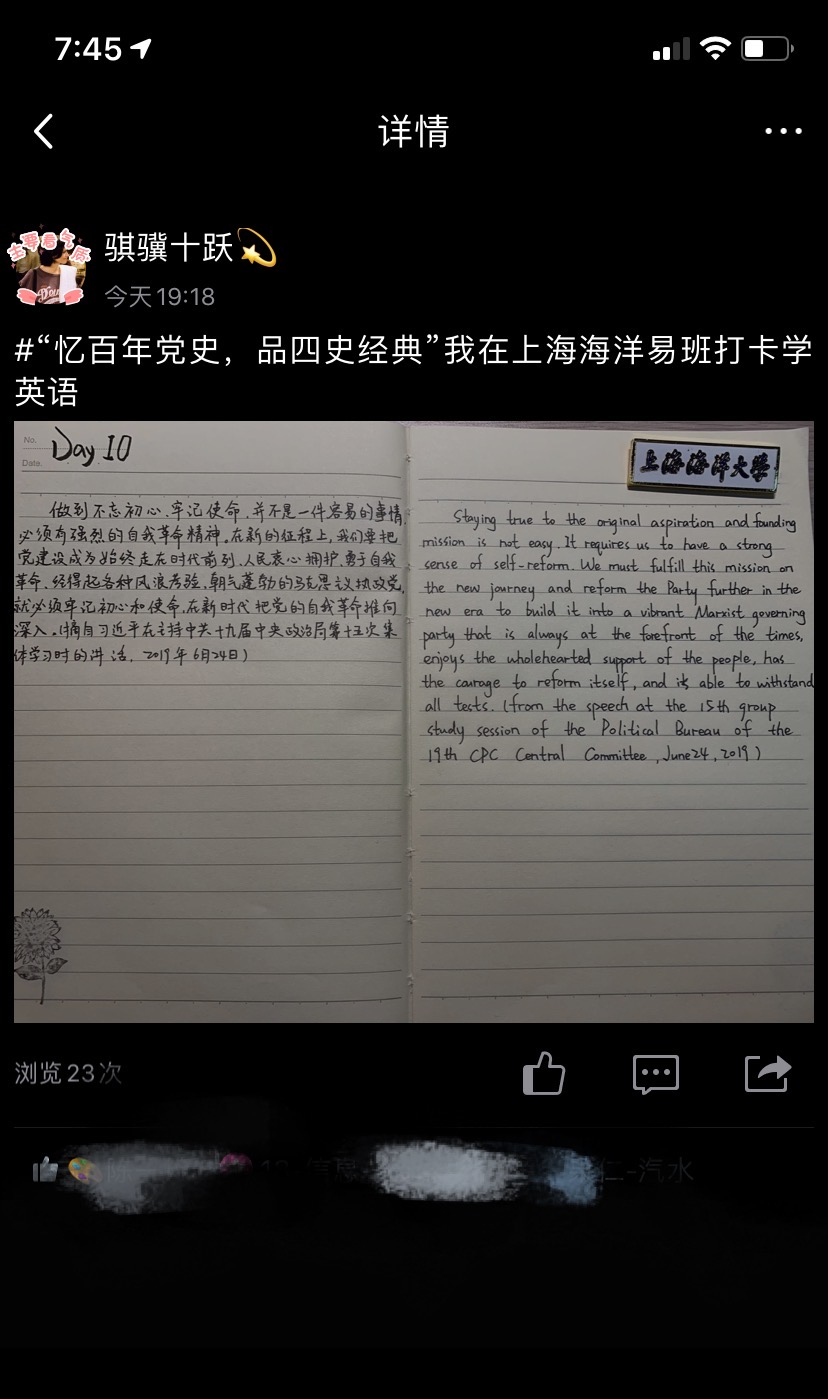 7:45
详情
主要看气质
骐骥十跃
今天 19:18
#“忆百年党史，品四史经典”我在上海海洋易班打卡学
英语
No.
Day 10
Date.
做到不忘初心、牢记使命，并不是一件容易的事情，
必须有强烈的自我革命精神。在新的征程上，我们要把
党建设成为始终走在时代前列、人民衷心拥护、勇于自我
革命、经得起各种风浪考验、朝气蓬勃的马克思主义执政党，
就必须牢记初心和使命，在新时代把党的自我革命推向
深入。（摘自习近平在主持中共十九届中央政治局第十五次集
体学习时的讲话，2019年6月24日）
上海海洋大学
Staying true to the original aspiration and founding
mission is not easy. It requires us to have a strong
sense of self-reform. We must fulfill this mission on
the new journey and reform the Party further in the
new era to build it into a vibrant Marxist governing
party that is always at the forefront of the times,
enjoys the wholehearted support of the people, has
the courage to reform itself, and is able to withstand
all tests. (from the speech at the 15th group
study session of the Political Bureau of the
19th CPC Central Committee, June 24, 2019)
浏览23次
仁-汽水